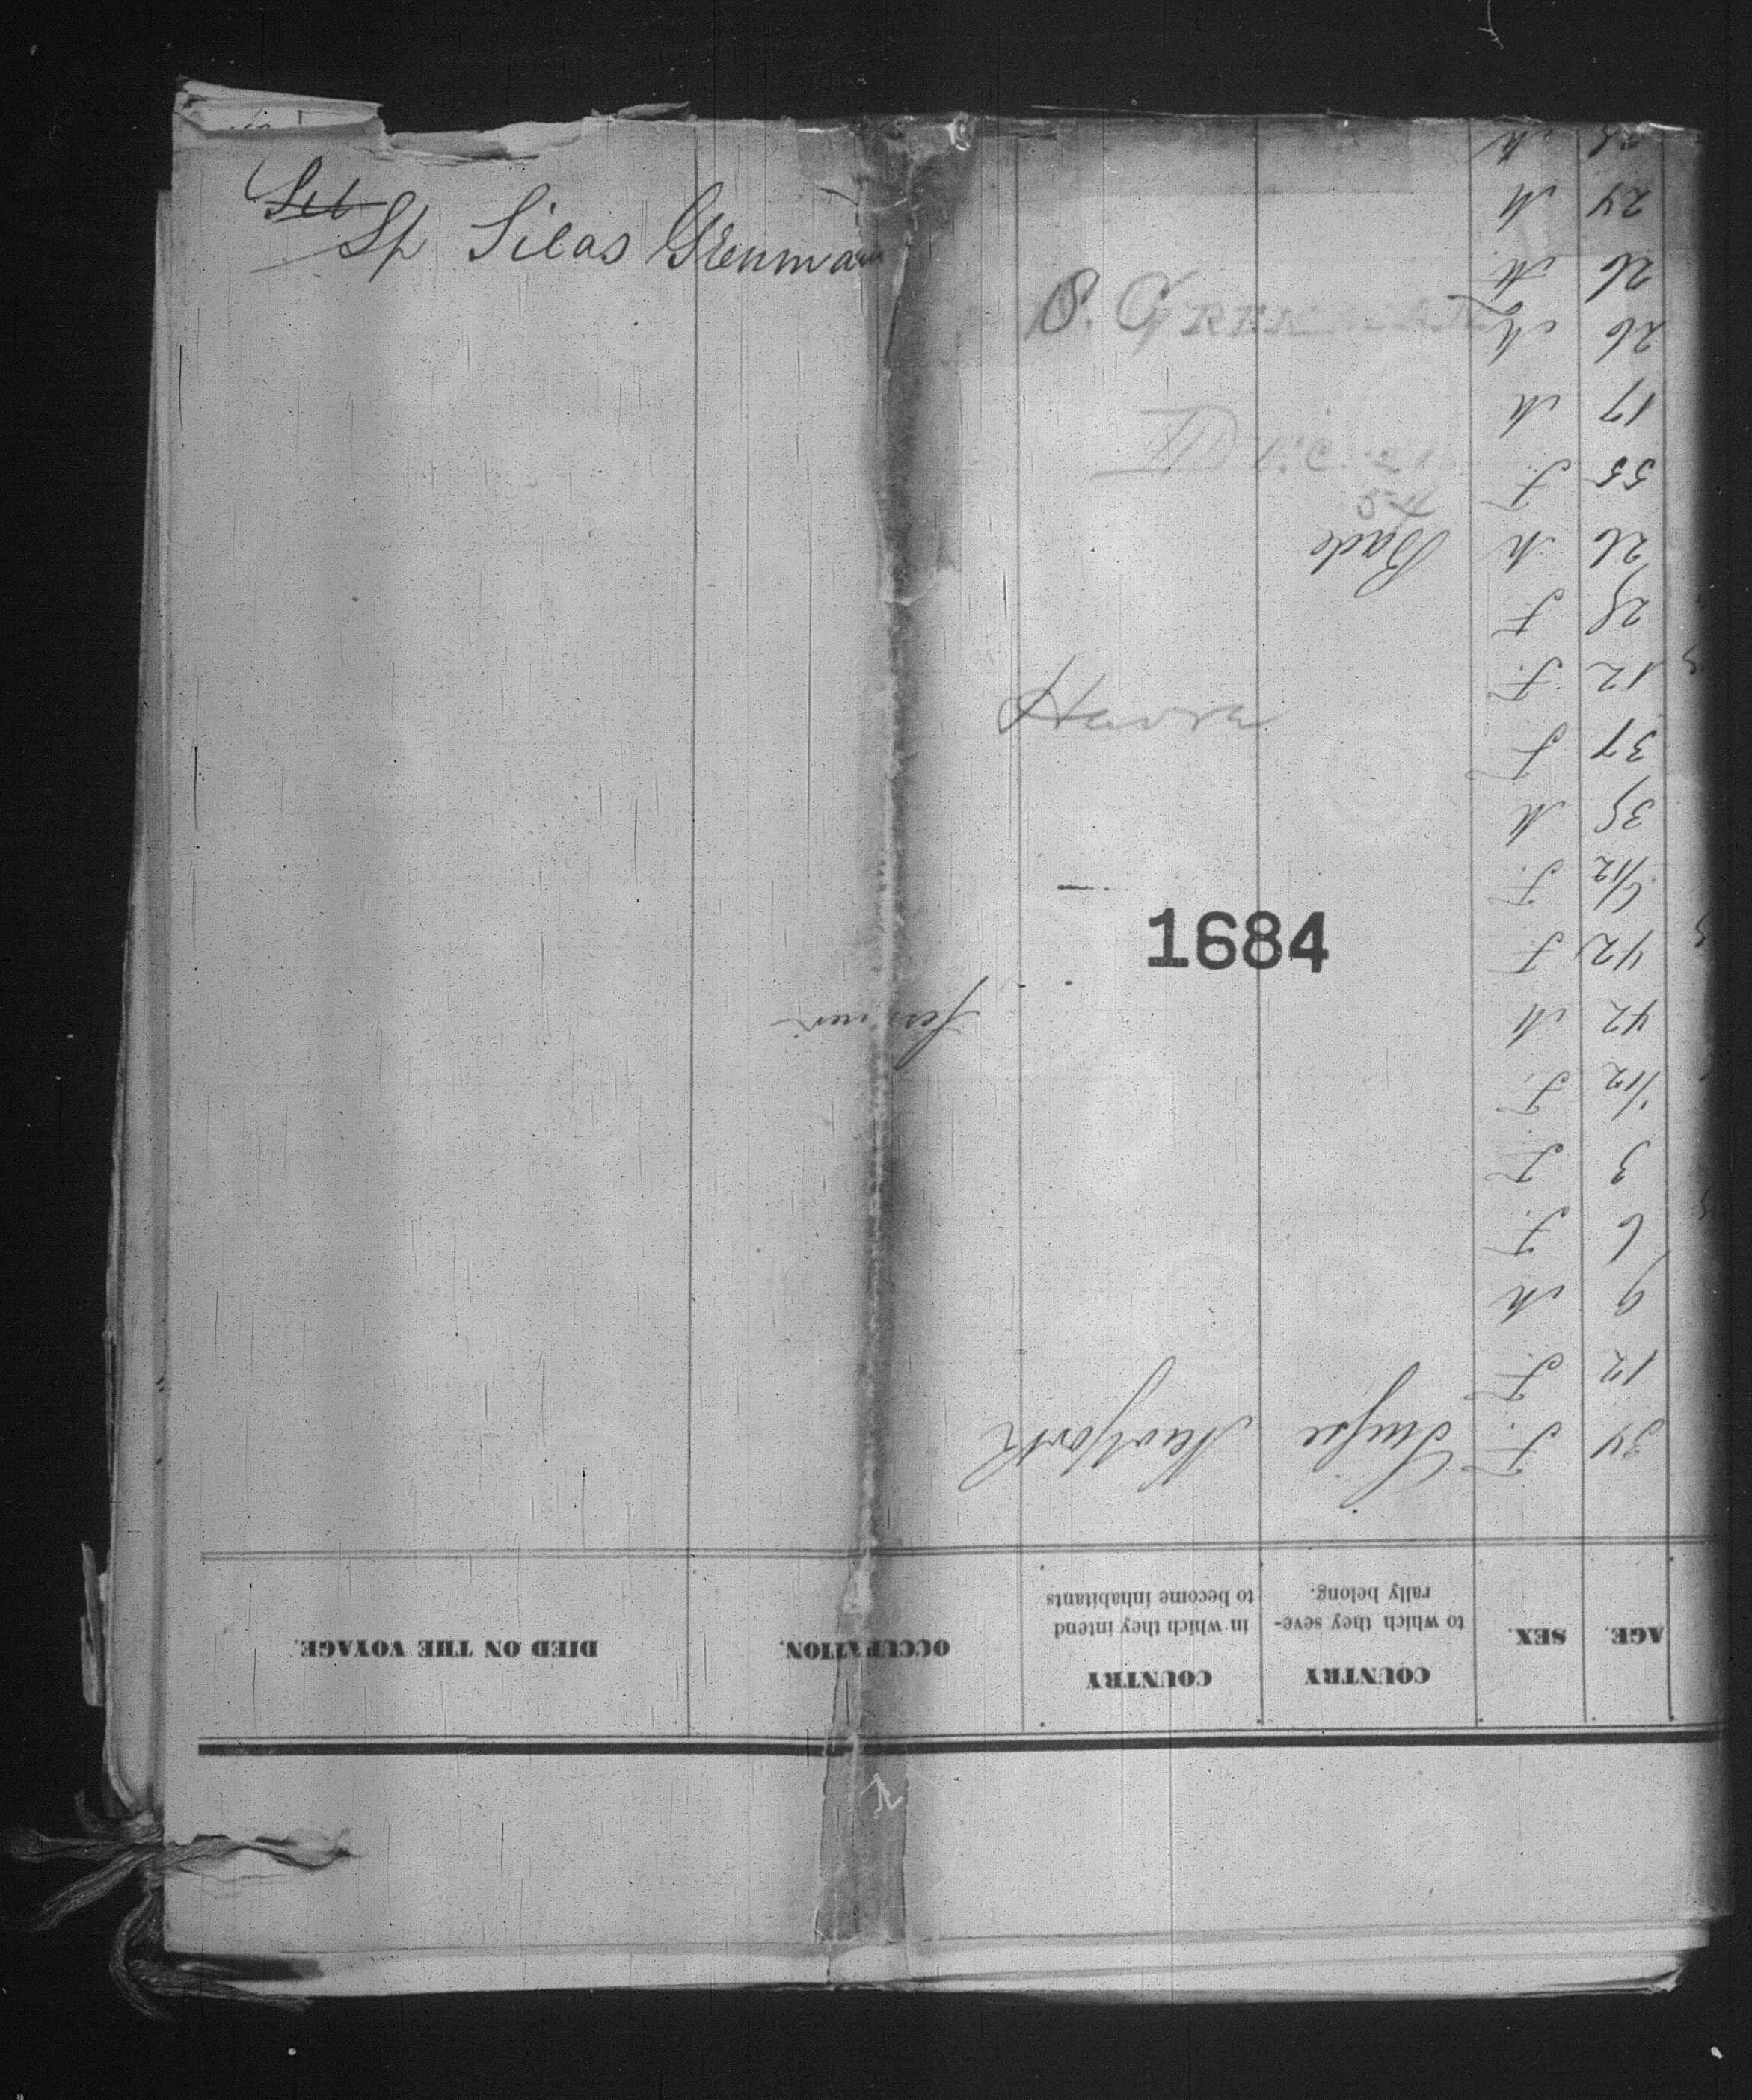 Sp Silas Grenman
S. Greenman
Dec 21
54
Havre
1684
AGE. SEX. COUNTRY to which they seve-rally belong. COUNTRY in which they intend to become inhabitants OCCUPATION. DIED ON THE VOYAGE.
34 F. Suisse NewYork
12 F.
9 M
6 F.
3 F.
1/12 F.
42 M farmer
42 F
6/12 F.
35 M
37 F
12 F.
28 F
26 M Bade
55 F.
17 M
26 M
26 M.
24 M
M